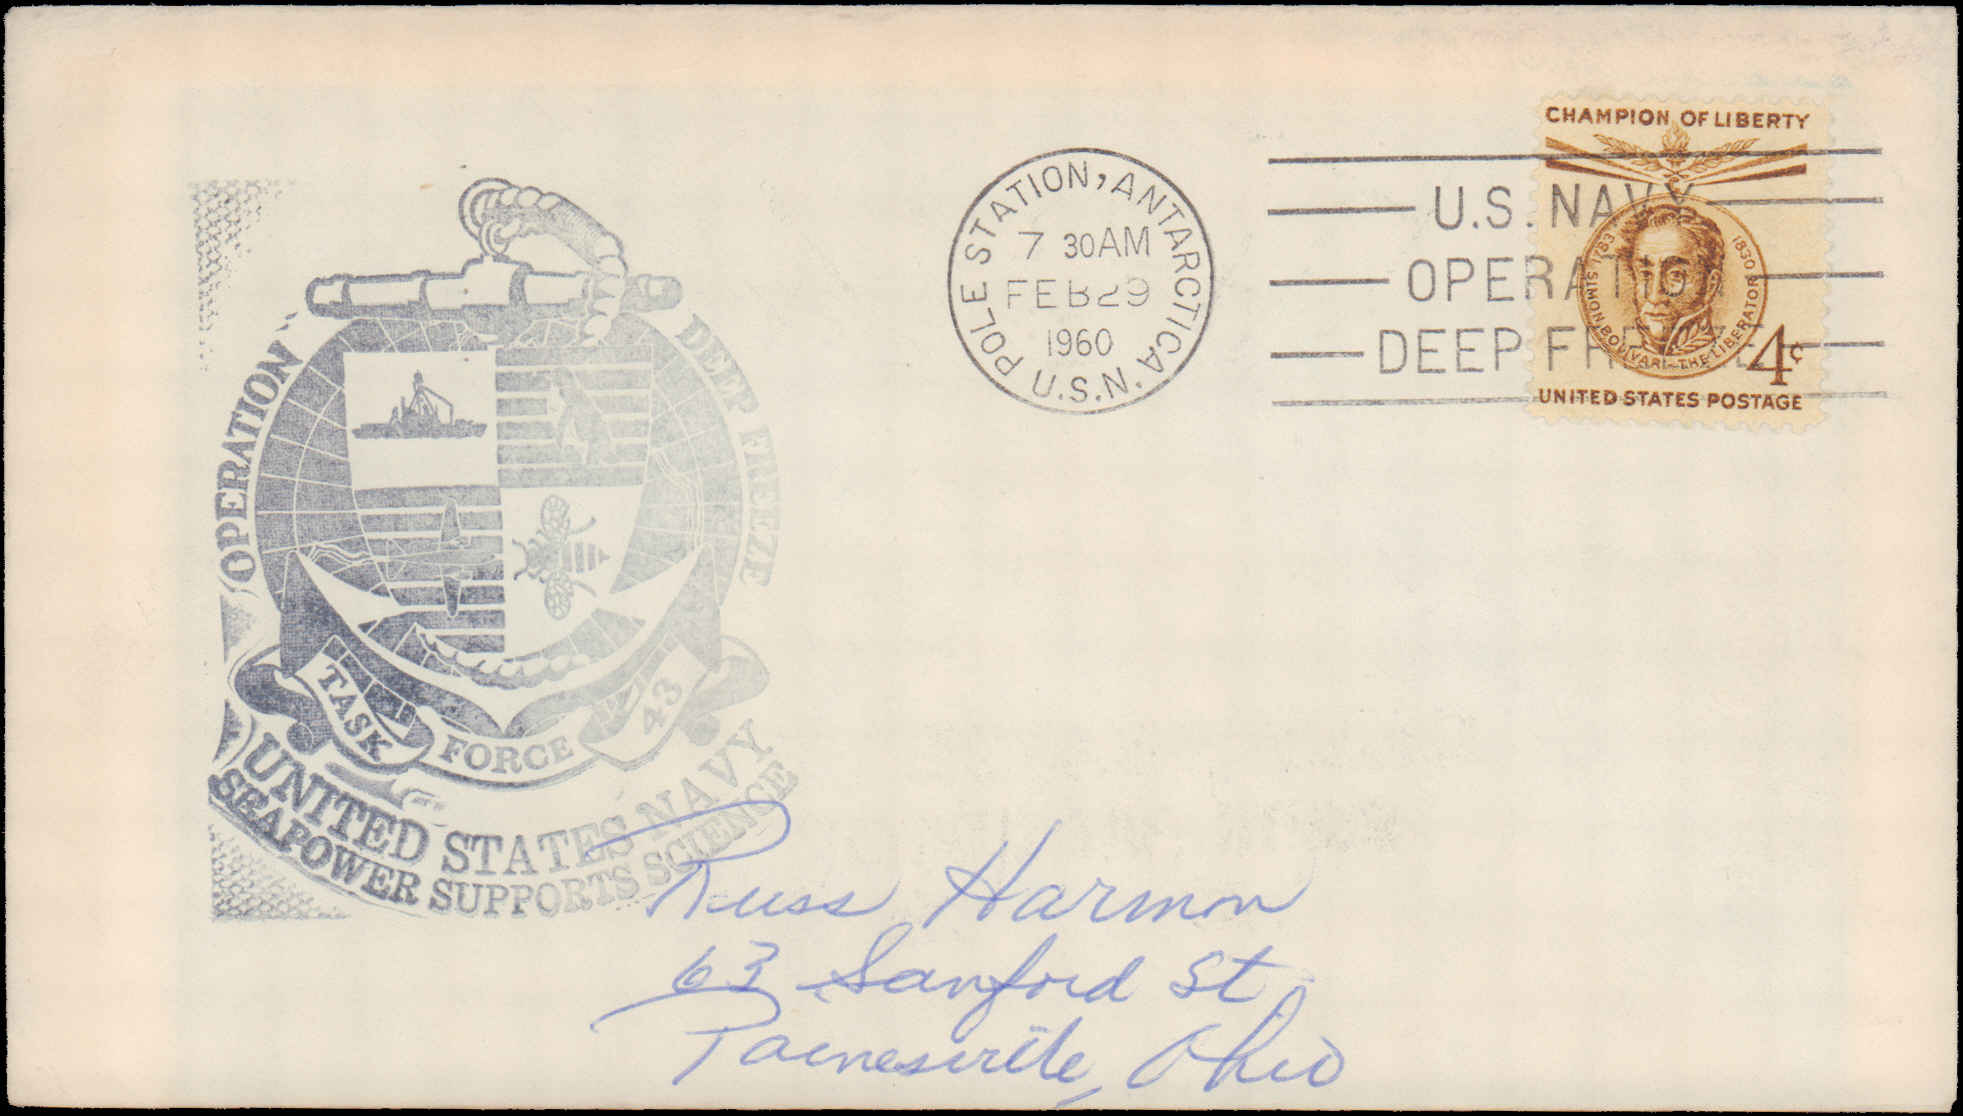 OPERATION DEEP FREEZE
TASK FORCE 43
UNITED STATES NAVY
SEAPOWER SUPPORTS SCIENCE
POLE STATION, ANTARCTICA
7 30AM
FEB 29
1960
U.S.N.
U.S. NAVY
OPERATION
DEEP FREEZE
CHAMPION OF LIBERTY
1783 SIMON BOLIVAR-THE LIBERATOR 1830
4¢
UNITED STATES POSTAGE
Russ Harmon
63 Sanford St
Painesville, Ohio